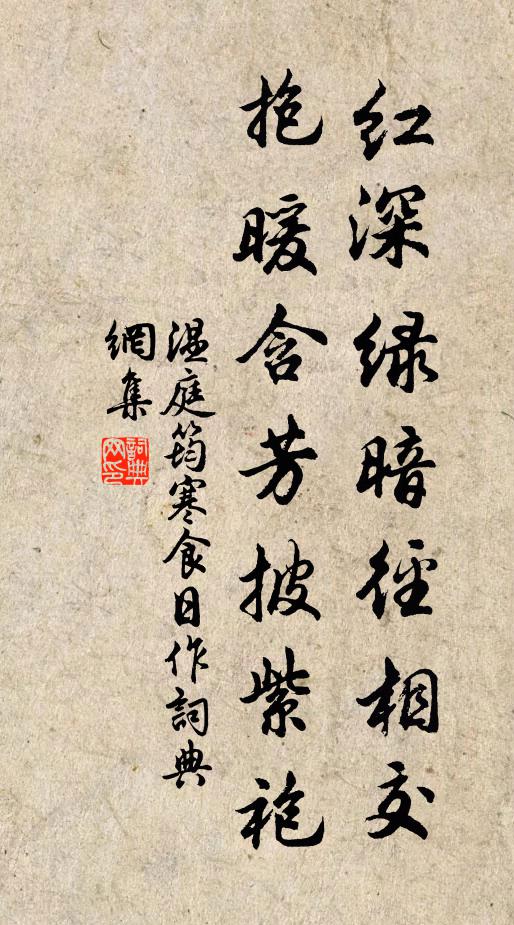 红深绿暗径相交
抱暖含芳披紫袍
温庭筠寒食日作词典
網集
詞典
网印